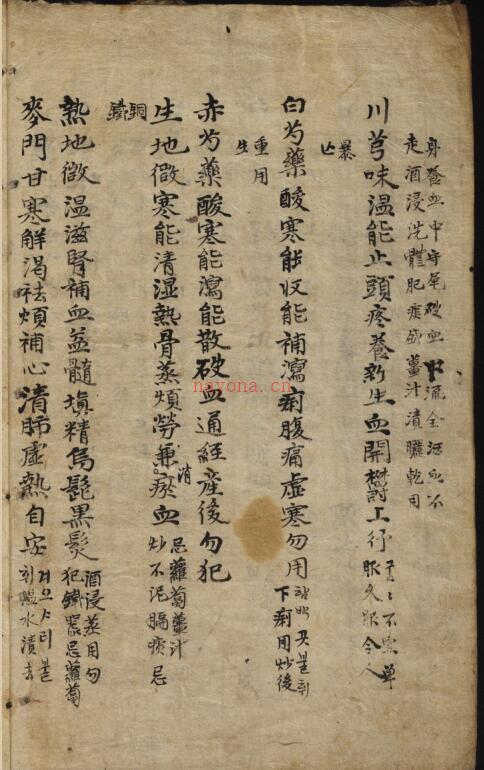 身養血中守尾破血下流全活血不
走酒浸洗體肥痰盛薑汁漬曬乾用
川芎味温能止頭疼養新生血開欝上行
不宜單
服久服令人
暴
亡
白芍藥酸寒能收能補瀉痢腹痛虛寒勿用
下痢用炒後
重用
生
赤芍藥酸寒能瀉能散破血通經産後勿犯
生地微寒能清湿熱骨蒸煩勞兼消瘀血
忌蘿蔔薑汁
炒不泥膈痰忌
銅
鐵
熟地微温滋腎補血益髓塡精烏髭黑髮
酒浸蒸用勿
犯鐵器忌蘿蔔
麥門甘寒解渴祛煩補心清肺虛熱自安
겨으사리불
휘温水漬去
nayona.cn